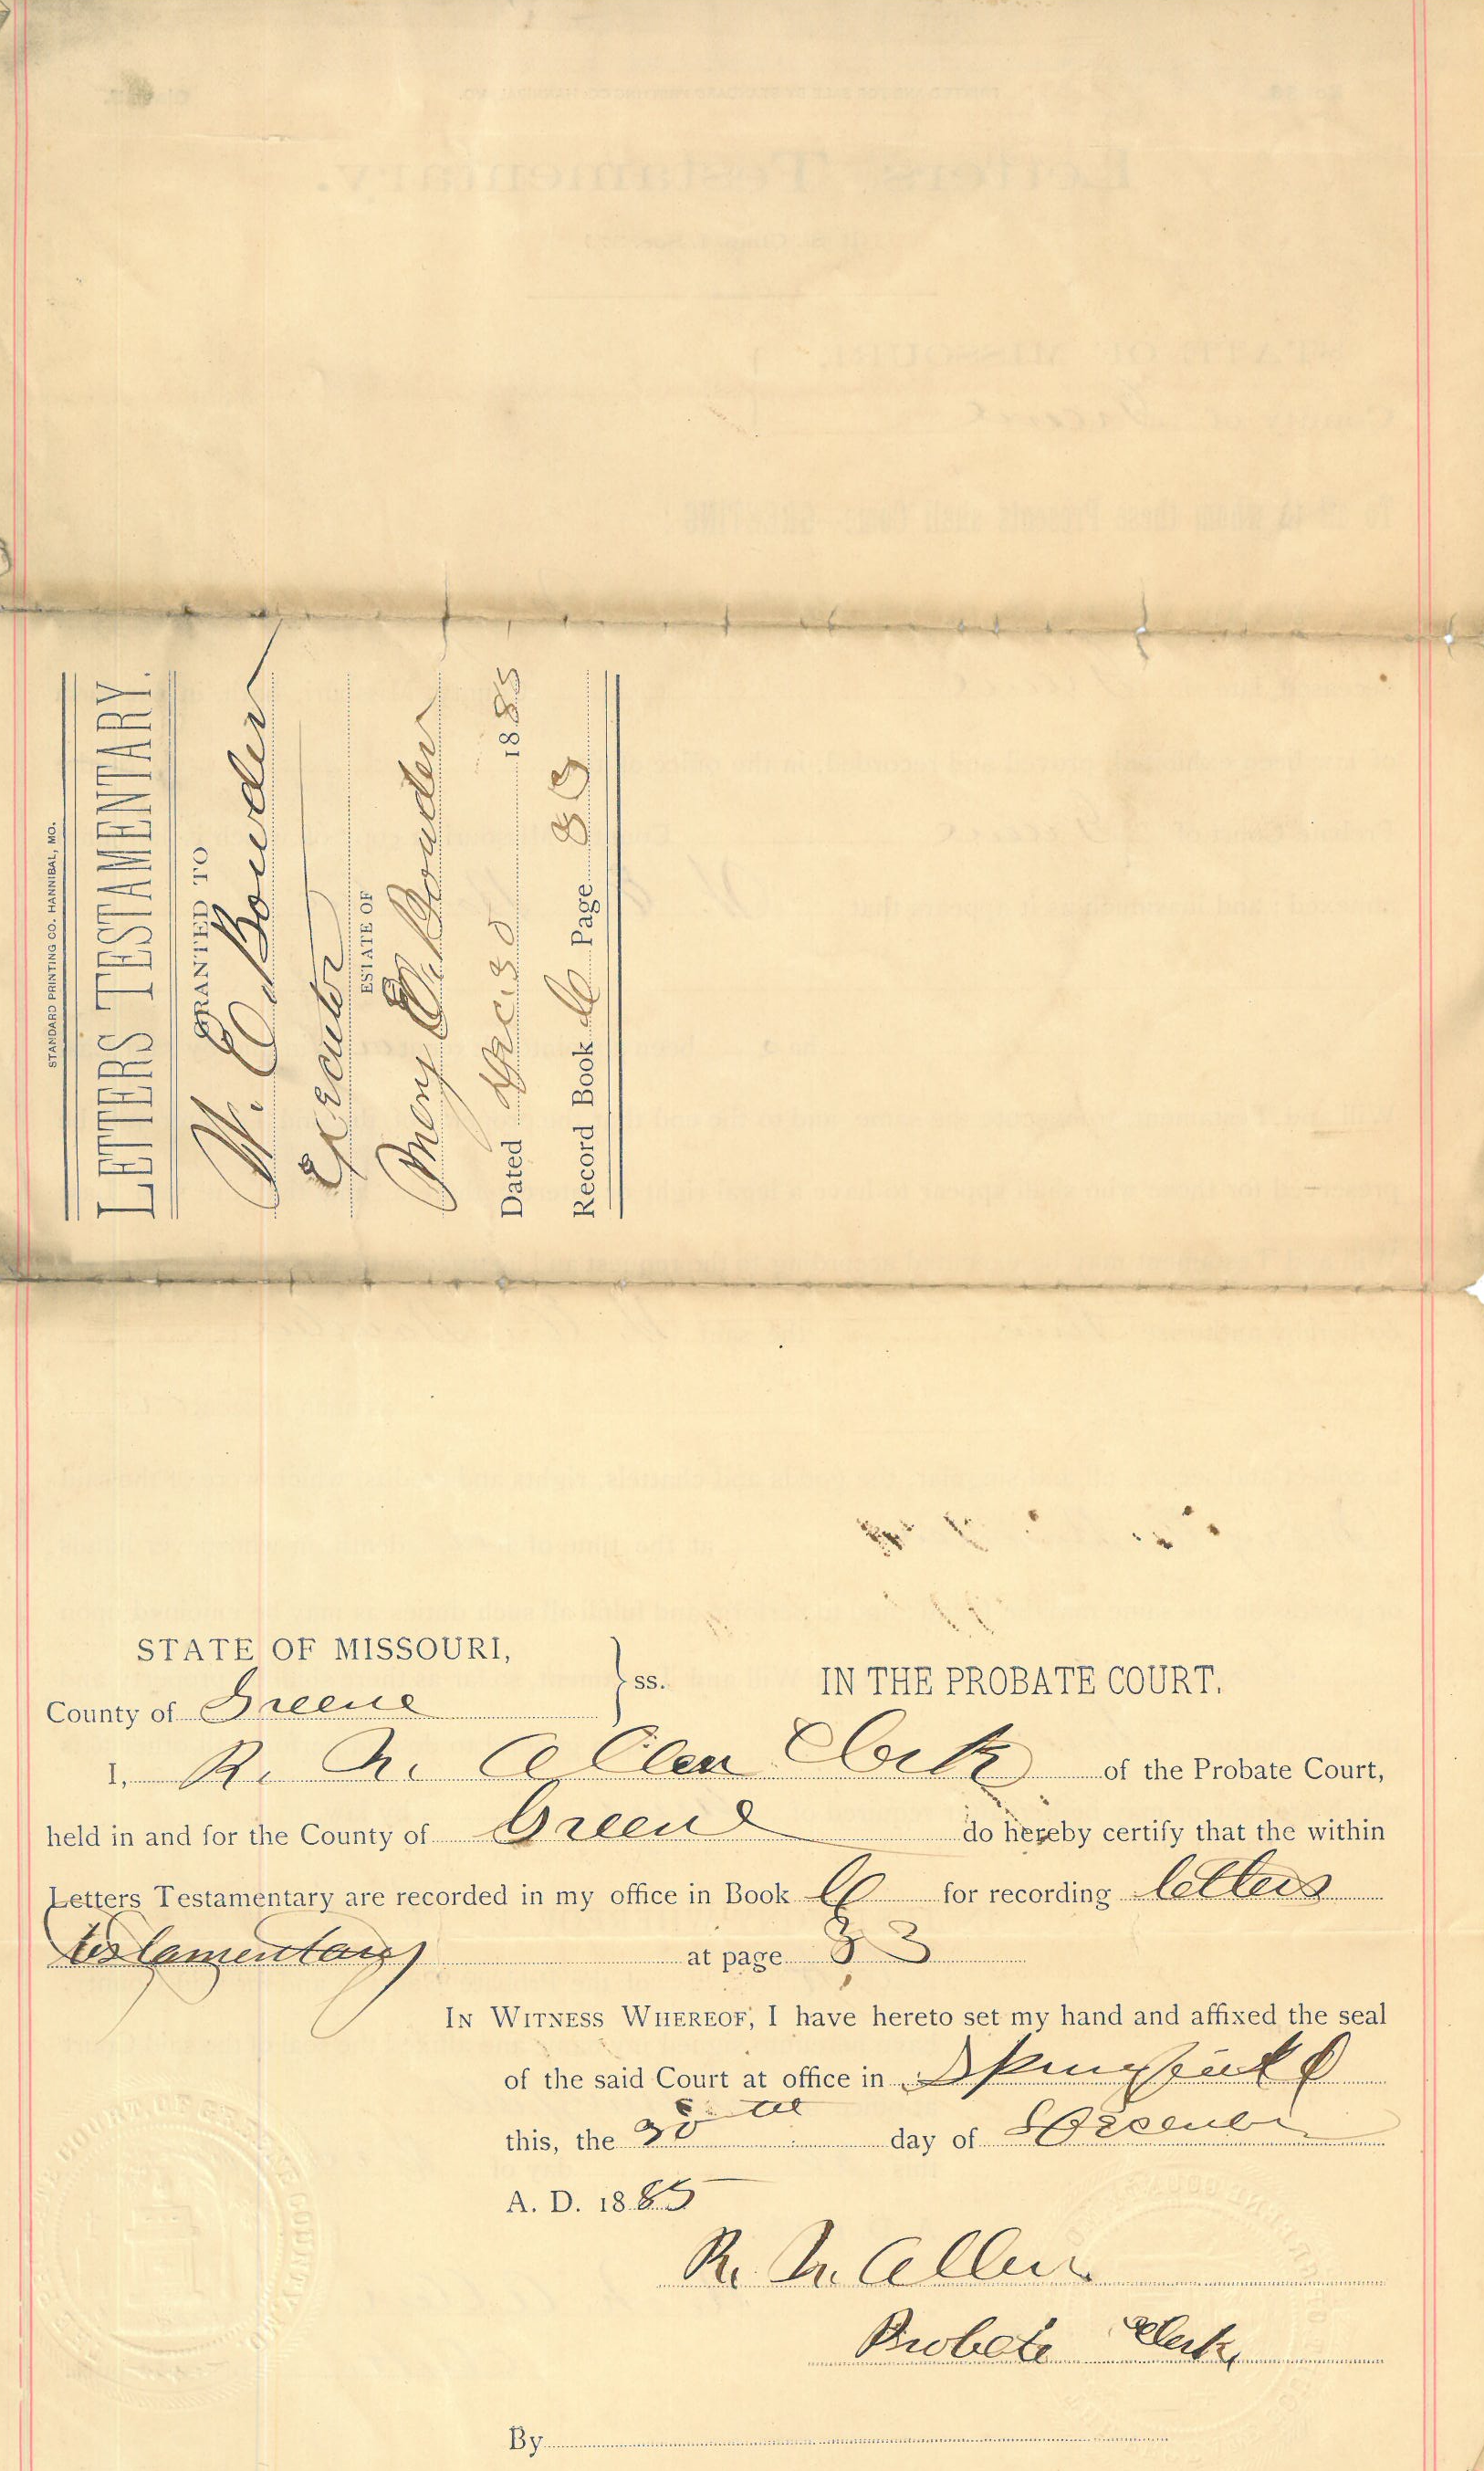 STANDARD PRINTING CO. HANNIBAL, MO.
LETTERS TESTAMENTARY.
GRANTED TO
W. C. Bowden
Executor
ESTATE OF
Mary E. Bowden
Dated Dec. 30 1885
Record Book C Page 83
STATE OF MISSOURI,
County of Greene
ss.
IN THE PROBATE COURT.
I, R. N. Allen Clerk of the Probate Court,
held in and for the County of Greene do hereby certify that the within
Letters Testamentary are recorded in my office in Book C for recording letters
testamentary at page 83
IN WITNESS WHEREOF, I have hereto set my hand and affixed the seal
of the said Court at office in Springfield
this, the 30th day of December
A. D. 1885
R. N. Allen
Probate Clerk,
By